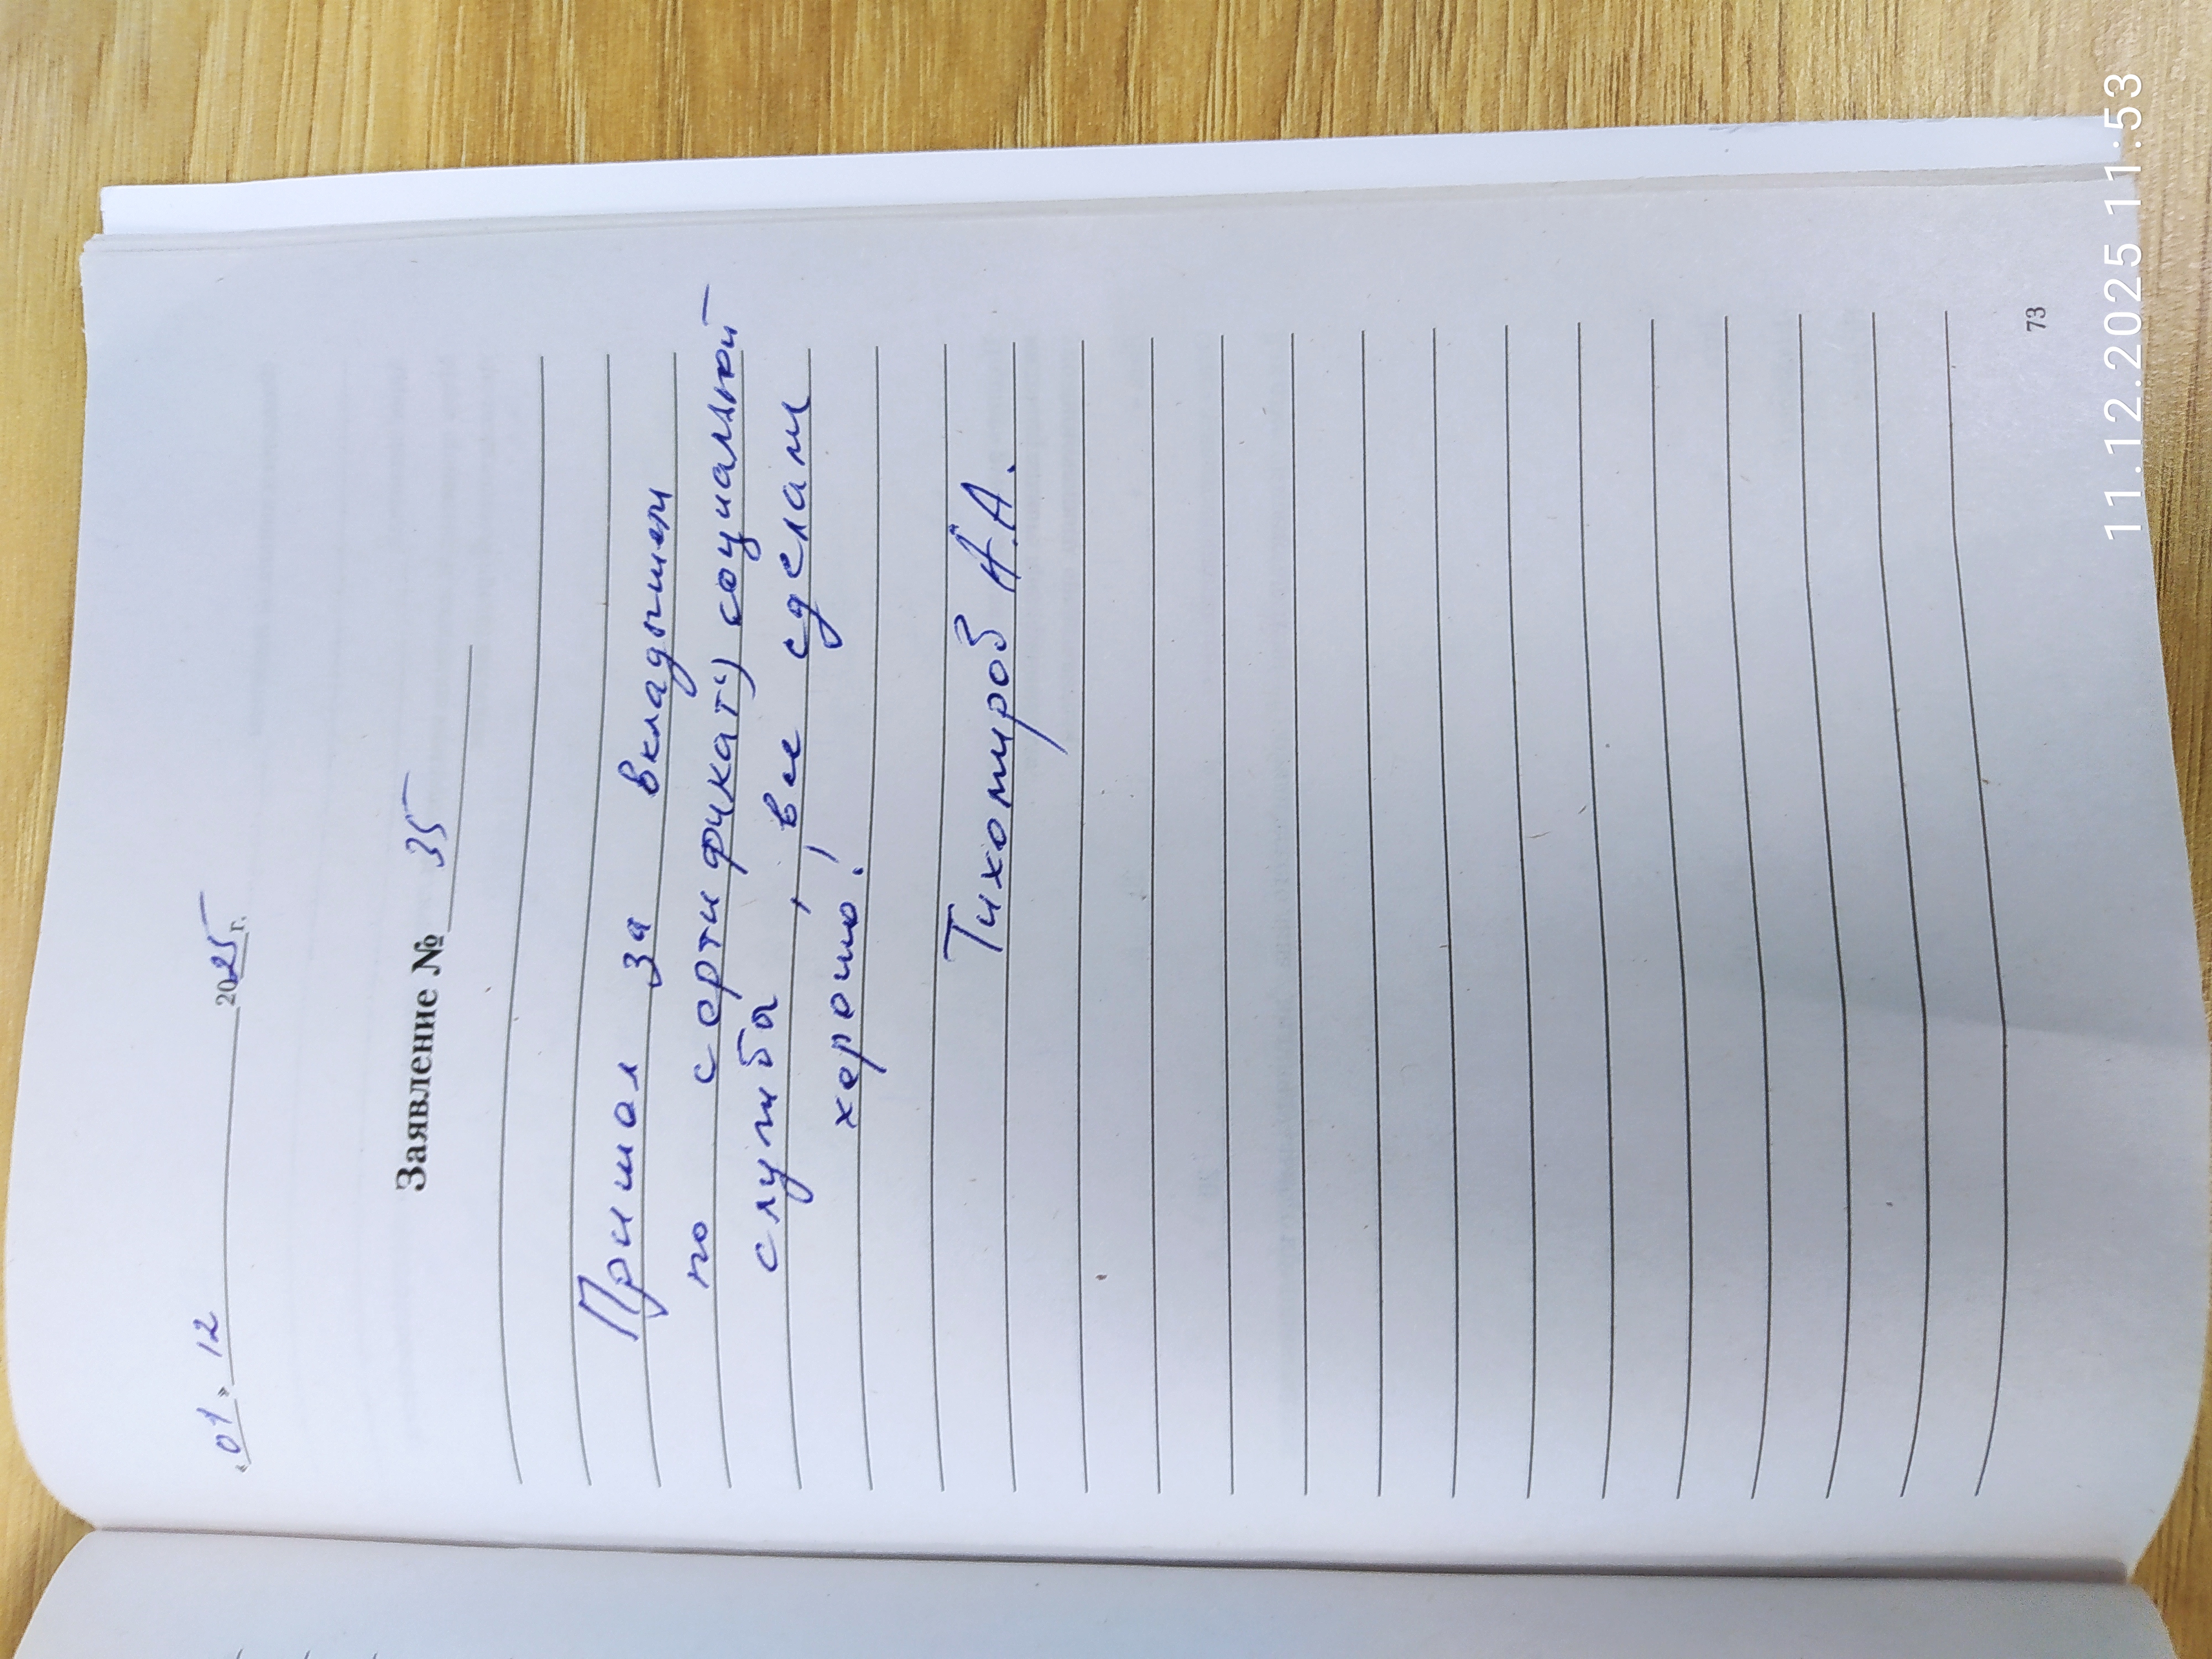 «01» 12 2025 г.
Заявление № 35
Пришол за вкладышем
по сертификату социальной
службы, все сделали
хорошо!
Тихомиров А.А.
73
11.12.2025 11:53